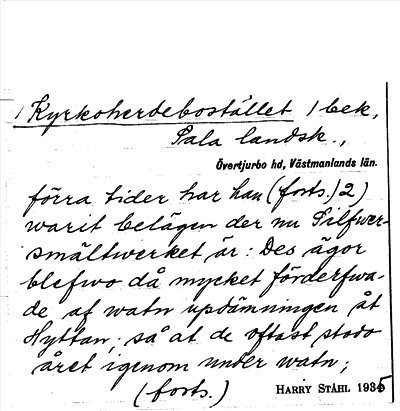 / Kyrkoherdebostället / bek,
Sala landsk.,
Övertjurbo hd, Västmanlands län.
förra tider har han (forts.) 2)
warit belägen der nu Silfwer-
smältwerket är: Des ägor
blefwo då mycket förderfwa-
de af watn updämningen åt
Hyttan, så at de oftast stodo
året igenom under watn;
(forts.)
HARRY STÅHL 1935